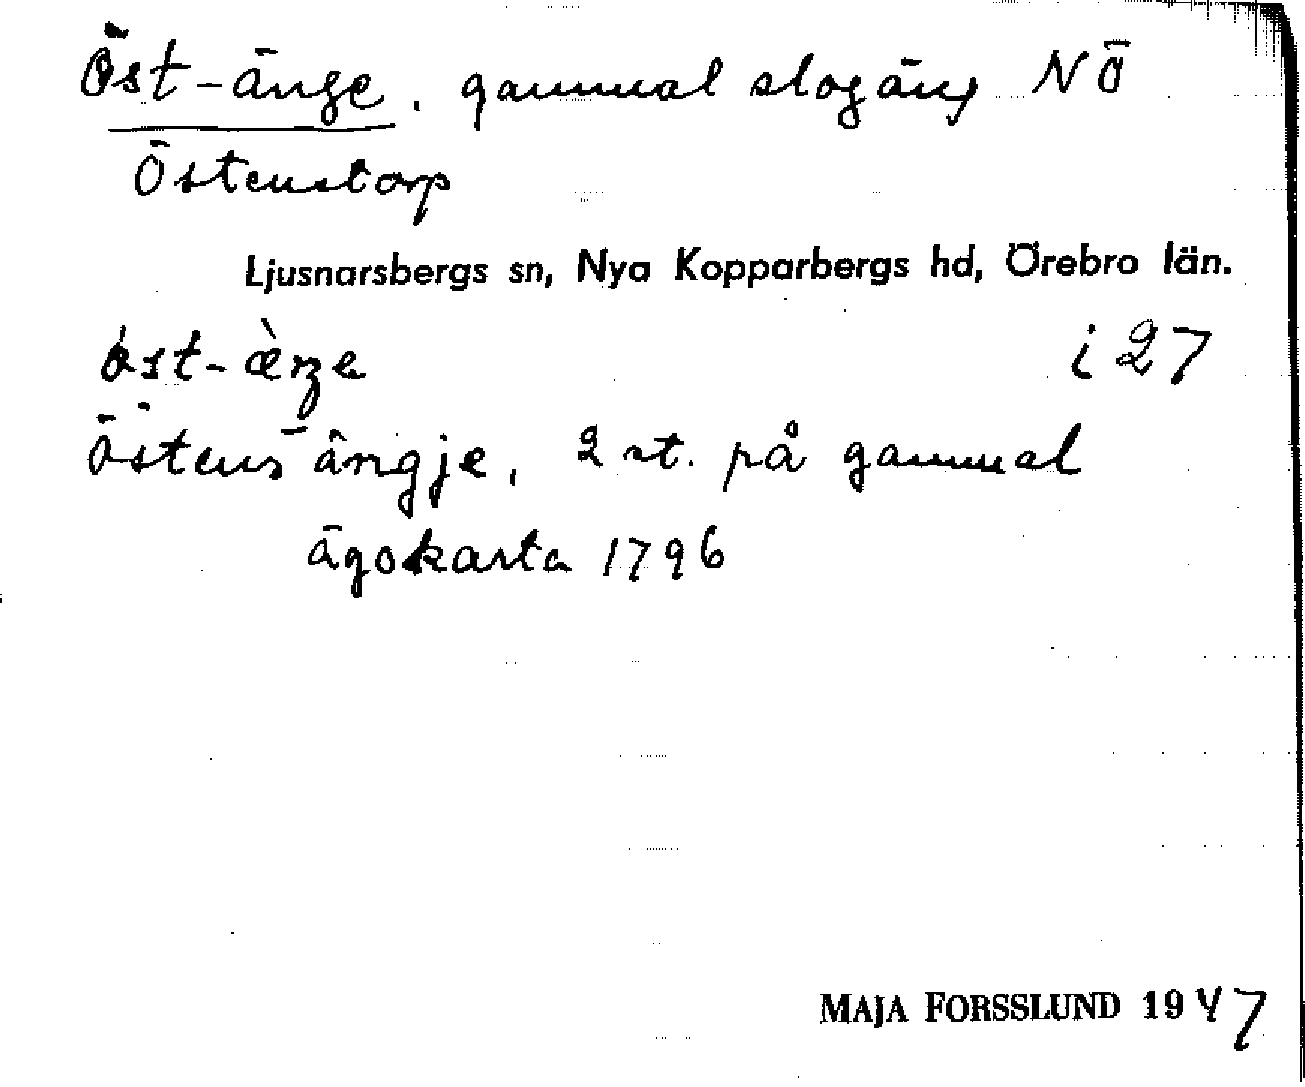 Öst-änge, gammal slogäng NÖ
Östenstorp
Ljusnarsbergs sn, Nya Kopparbergs hd, Örebro län.
i 27
Östens ängje, 2 st. på gammal
ägokarta 1796
MAJA FORSSLUND 1947